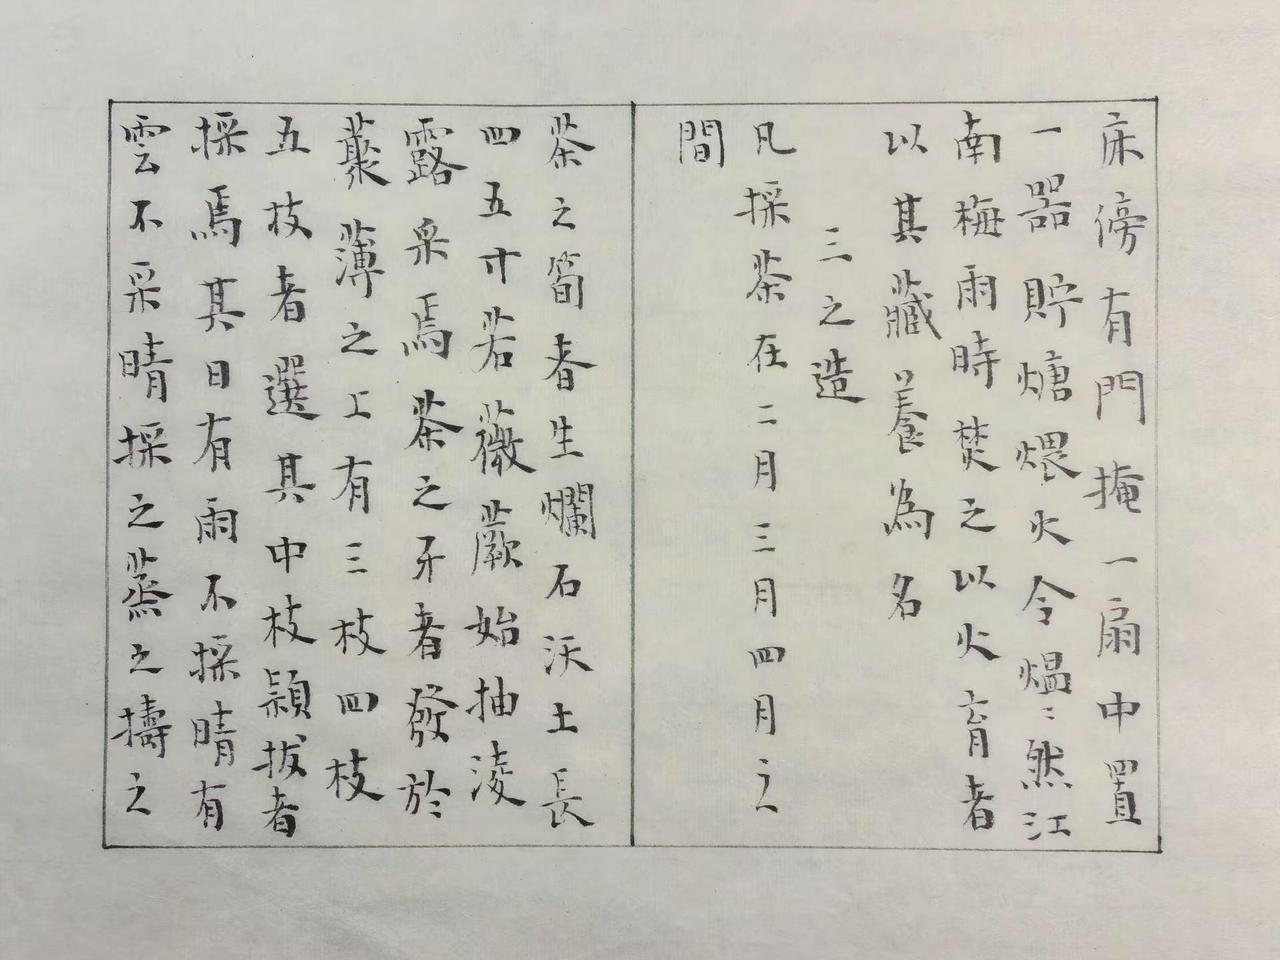 床傍有門掩一扇中置
一器貯煻煨火令熅〻然江
南梅雨時焚之以火育者
以其藏養為名
三之造
凡採茶在二月三月四月之
間
茶之筍者生爛石沃土長
四五寸若薇蕨始抽淩
露采焉茶之牙者發於
藂薄之上有三枝四枝
五枝者選其中枝頴拔者
採焉其日有雨不採晴有
雲不采晴採之蒸之擣之